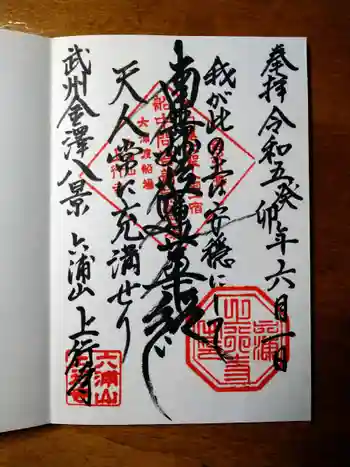 奉拝 令和五癸卯年六月一日
我が此の土は安穏にして
南無妙法蓮華経
天人常に充満せり
武州金澤八景 六浦山 上行寺
六浦山
上行寺